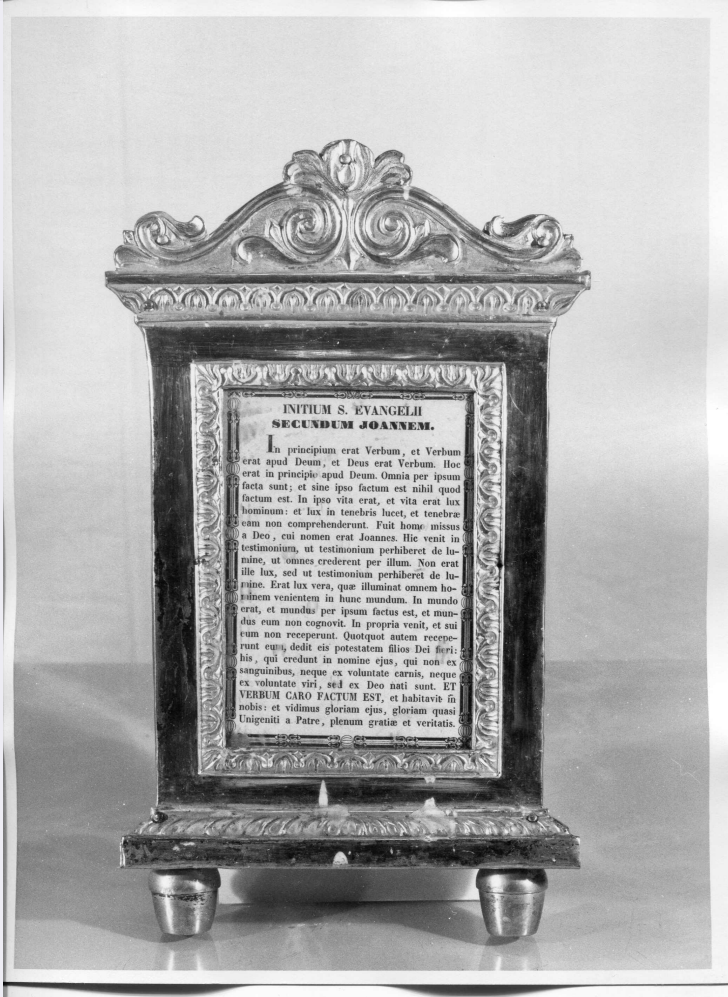 INITIUM S. EVANGELII
SECUNDUM JOANNEM.
In principium erat Verbum, et Verbum
erat apud Deum, et Deus erat Verbum. Hoc
erat in principio apud Deum. Omnia per ipsum
facta sunt; et sine ipso factum est nihil quod
factum est. In ipso vita erat, et vita erat lux
hominum: et lux in tenebris lucet, et tenebræ
eam non comprehenderunt. Fuit homo missus
a Deo, cui nomen erat Joannes. Hic venit in
testimonium, ut testimonium perhiberet de lu-
mine, ut omnes crederent per illum. Non erat
ille lux, sed ut testimonium perhiberet de lu-
mine. Erat lux vera, quæ illuminat omnem ho-
minem venientem in hunc mundum. In mundo
erat, et mundus per ipsum factus est, et mun-
dus eum non cognovit. In propria venit, et sui
eum non receperunt. Quotquot autem recepe-
runt eum, dedit eis potestatem filios Dei fieri:
his, qui credunt in nomine ejus, qui non ex
sanguinibus, neque ex voluntate carnis, neque
ex voluntate viri, sed ex Deo nati sunt. ET
VERBUM CARO FACTUM EST, et habitavit in
nobis: et vidimus gloriam ejus, gloriam quasi
Unigeniti a Patre, plenum gratiæ et veritatis.